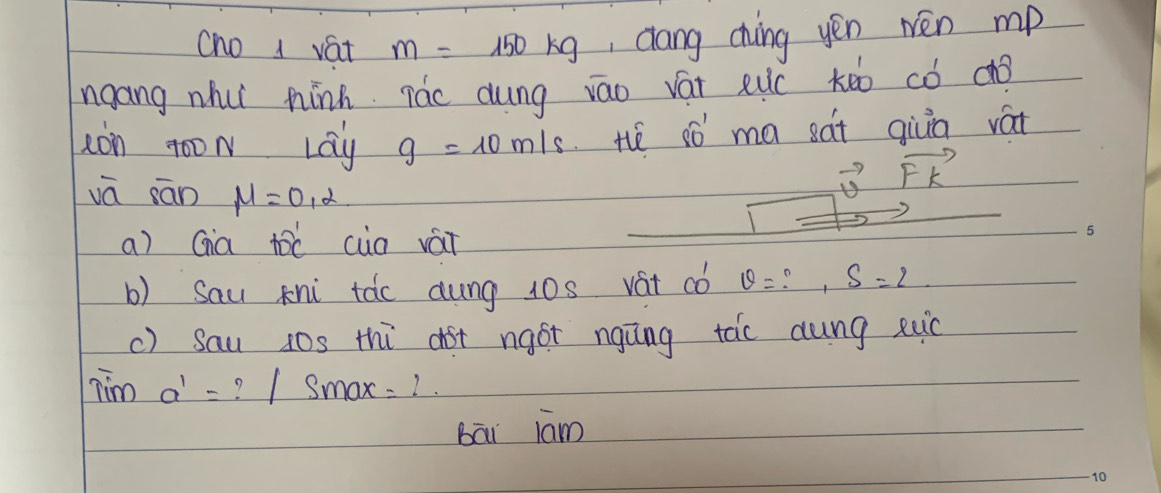 Cho 1 vật m = 150 kg, đang đứng yên trên mp
ngang như hình. Tác dụng vào vật lực kéo có độ
lớn 700N Lấy g = 10 m/s. Hệ số ma sát giữa vật
và sàn μ = 0,2.
v Fk
a) Gia tốc của vật
5
b) Sau khi tác dụng 10s vật có v = ?, S = ?.
c) Sau 10s thì đột ngột ngừng tác dụng lực
Tìm a' = ? / Smax = ?.
Bài làm
10